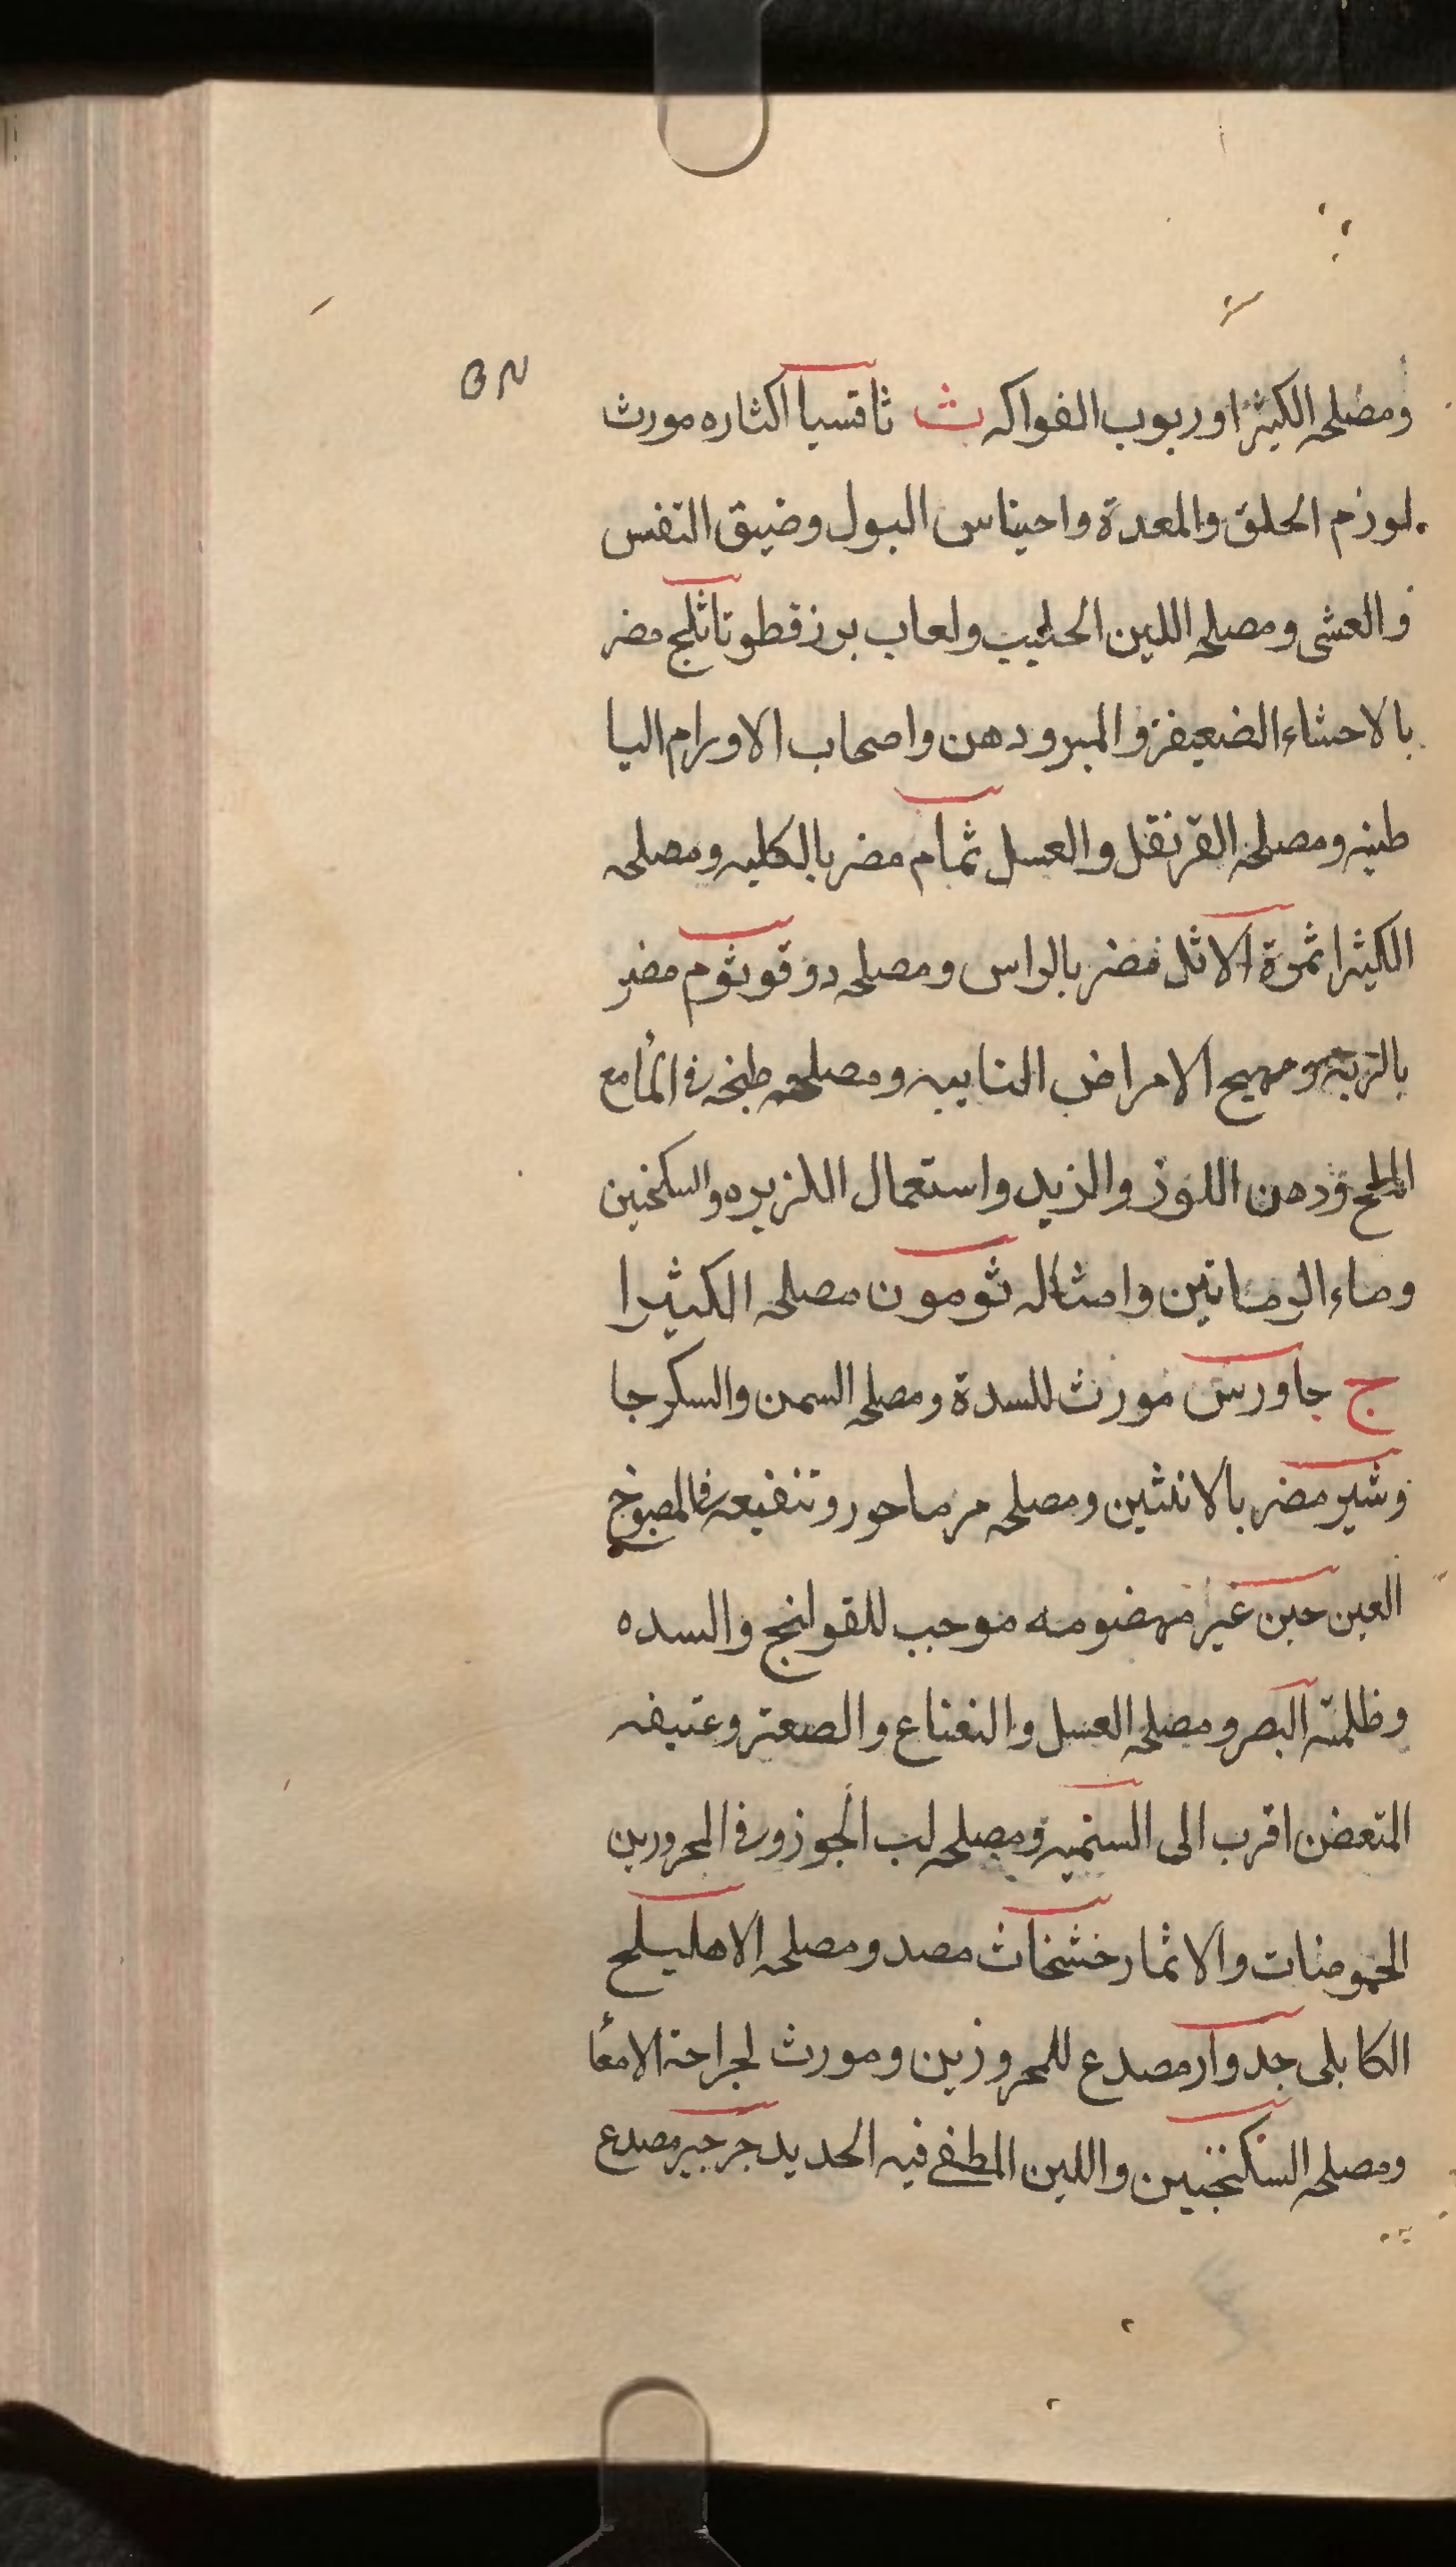 ومصلحه الكثيرا وربوب الفواكه ث ثاقسيا اكثاره مورث
لورم الحلق والمعدة واحيناس البول وضيق النفس
والعشى ومصلحه اللبن الحليب ولعاب برزقطونا ثلج مضر
بالاحشاء الضعيفة والمبرودهن واصحاب الاورام اليا
طنيه ومصلحه القرنفل والعسل ثمام مضر بالكليه ومصلحه
الكثيرا ثمرة الاثل مضر بالراس ومصلحه دوقو ثوم مضر
ومهيج الامراض النابيه ومصلحه طبخه فى الماء مع
الملح ودهن اللوز والزبد واستعمال اللزبره والسكنجين
وماء الرمانين وامثاله ثومون مصلحه الكثيرا
ج جاورس مورث للسدة ومصلحه السمن والسكر جا
وشير مضر بالانثين ومصلحه مرماحور وتنقيعه فى المصبوخ
العين جبن غير مهضومه موجب للقولنج والسده
وظلمته البصر ومصلحه العسل والنعناع والصعتر وعتيقه
المتعفن اقرب الى السنميه ومصلحه لب الجوز وفى المحرورين
الحموضات والاثمار خشخاث مصد ومصلحه الاهليلح
الكابلى جدوار مصدع للمحرورين ومورث لجراحة الامعا
ومصلحه السكنجبين واللبن المطفى فيه الحديد جرجير مصدع